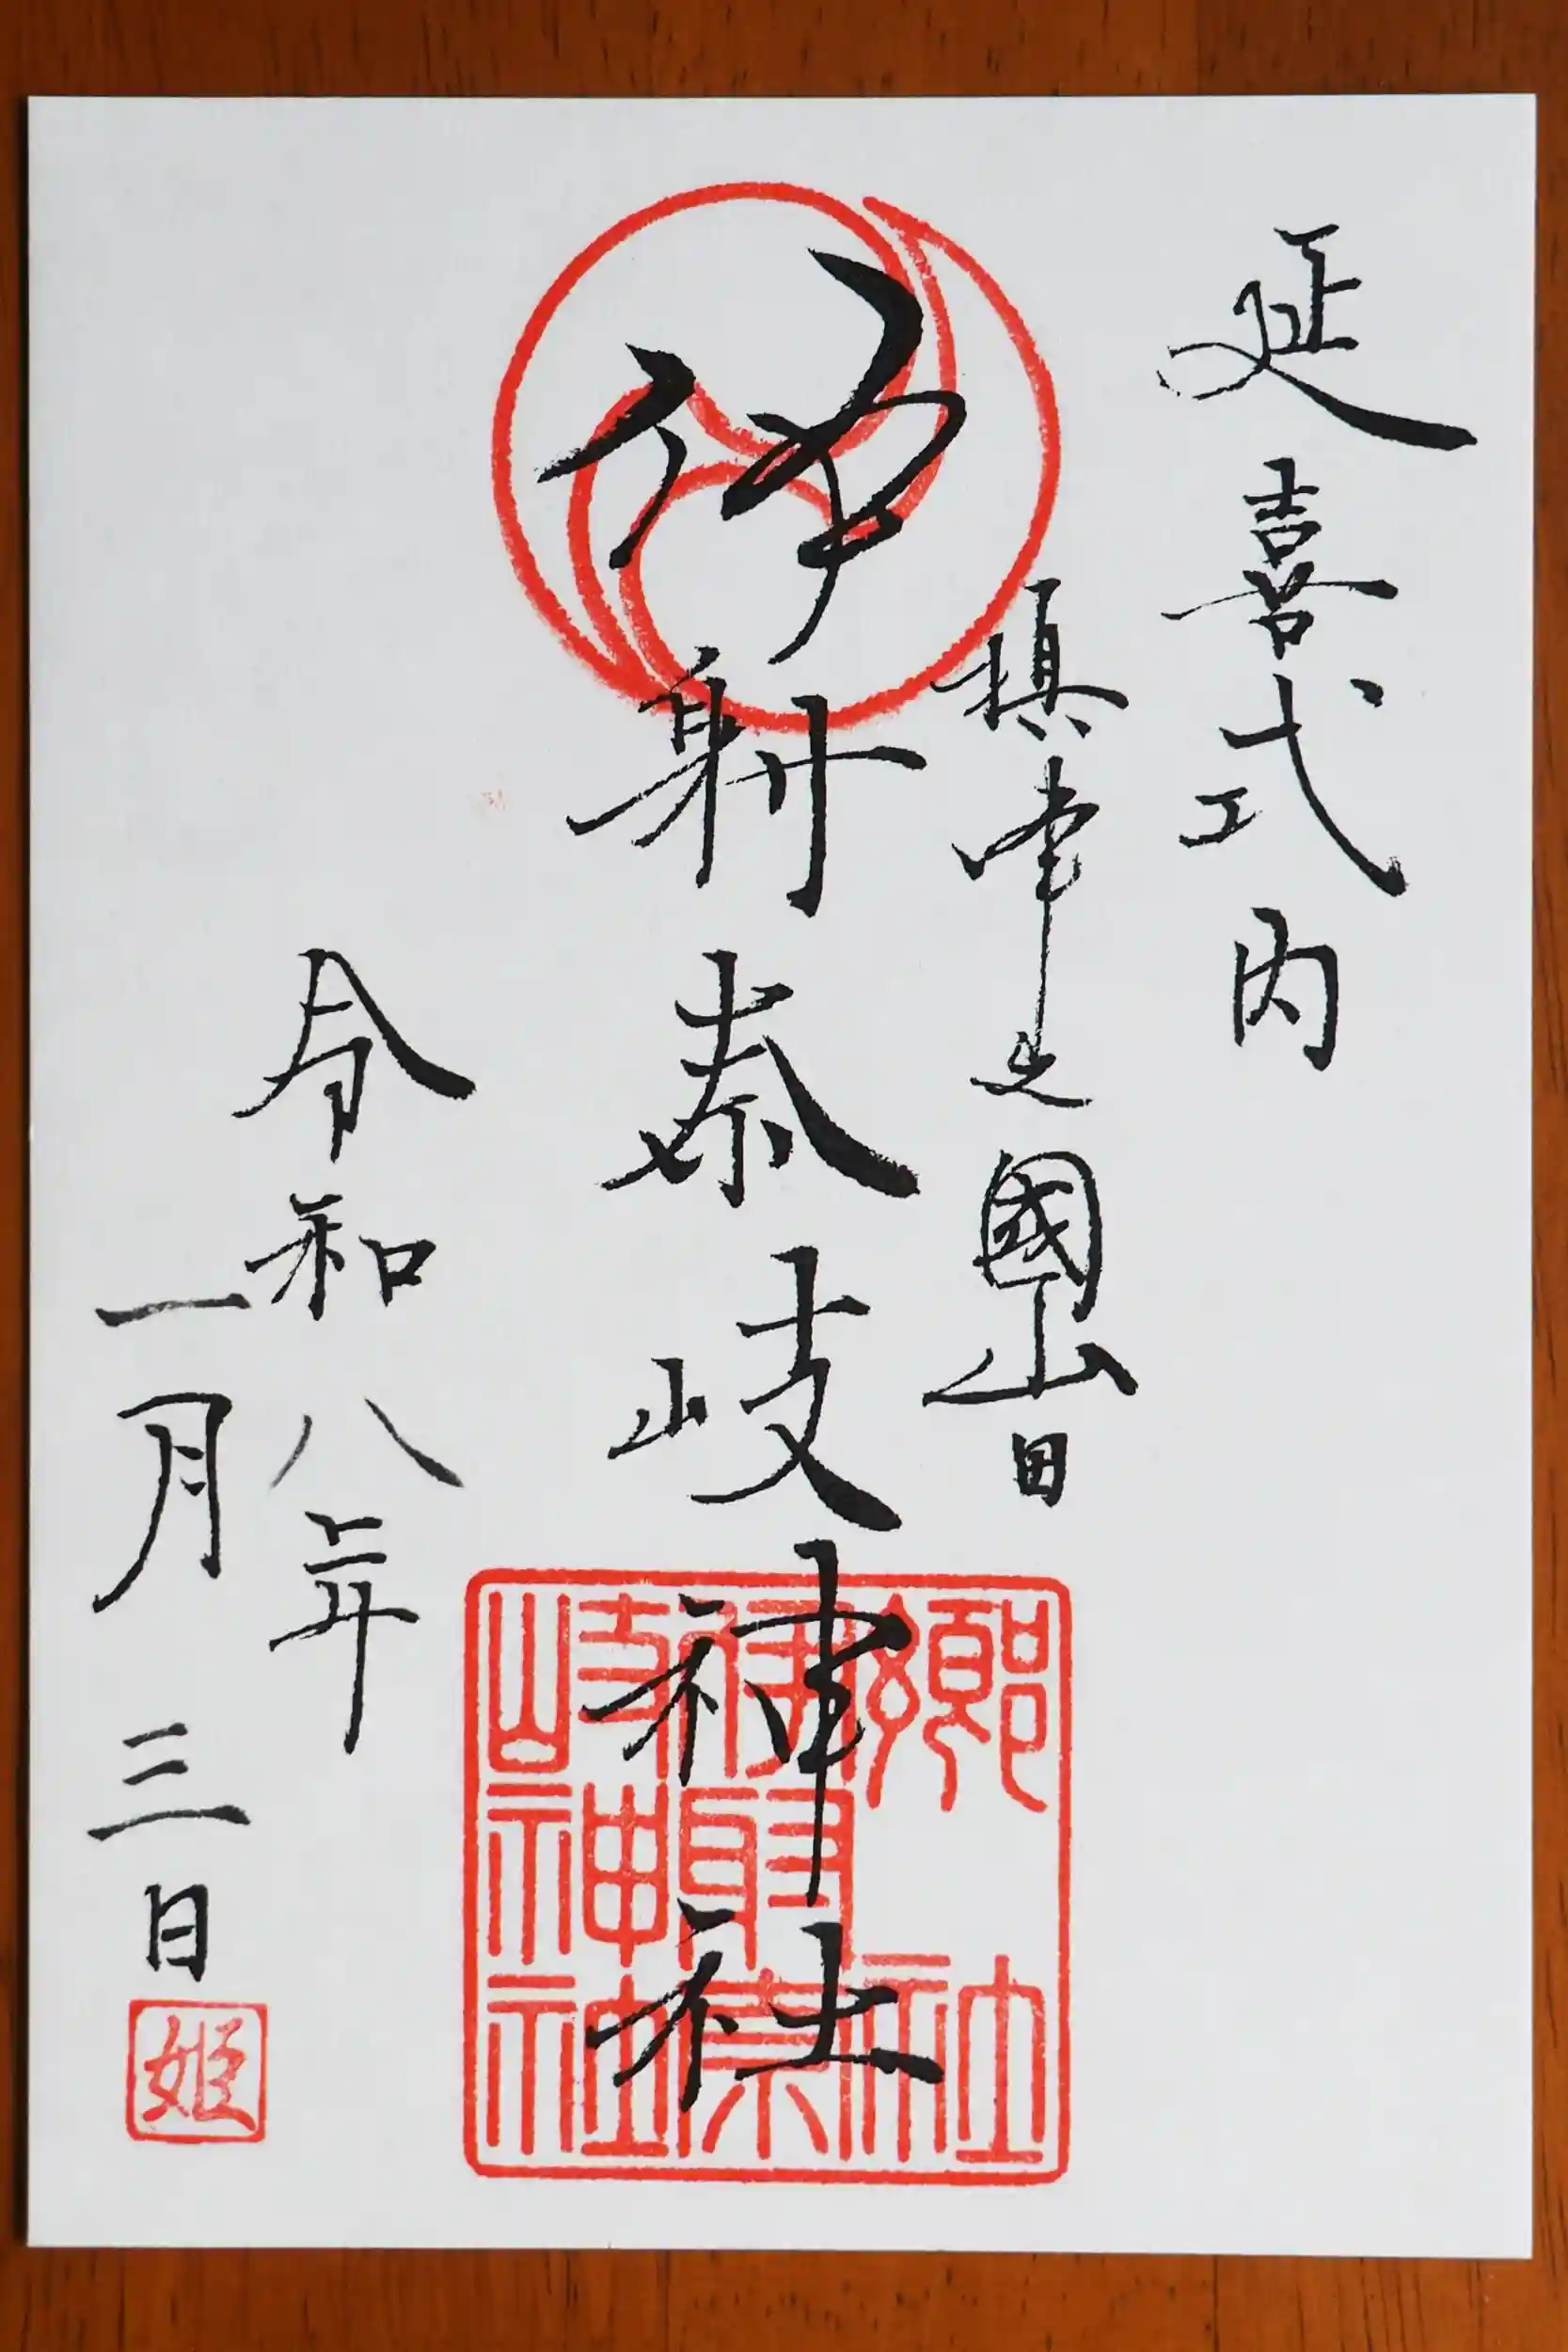 延喜式内
摂津之國山田
伊射奈岐神社
令和八年
一月三日
姫
郷社
伊射奈
岐神社